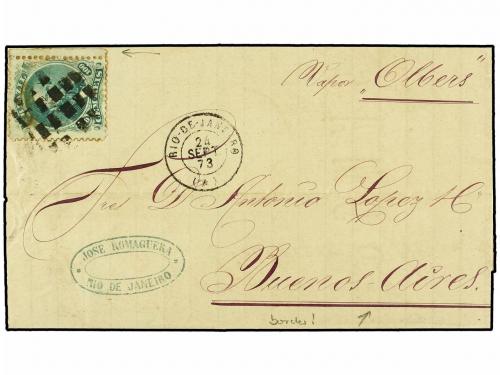 Vapor „Olbers"
RIO-DE-JANEIRO
24
SEPT
73
Sres D. Antonio Lopez y Ca
JOSE ROMAGUERA
RIO DE JANEIRO
Buenos-Aires.
bordes!